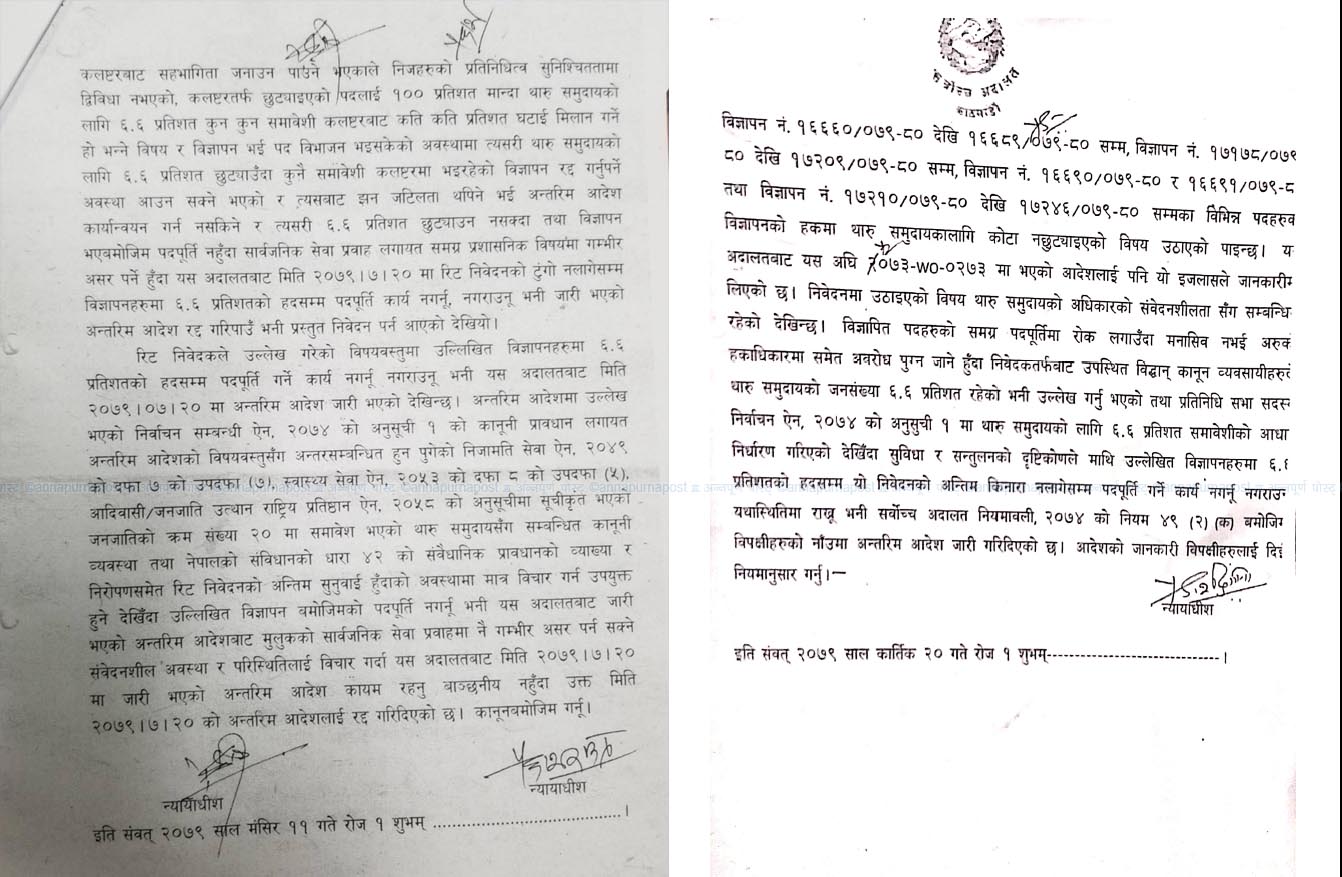 कलष्टरबाट सहभागिता जनाउन पाउने भएकाले निजहरुको प्रतिनिधित्व सुनिश्चिततामा
द्विविधा नभएको, कलष्टरतर्फ छुट्याइएको पदलाई १०० प्रतिशत मान्दा थारु समुदायको
लागि ६.६ प्रतिशत कुन कुन समावेशी कलष्टरबाट कति कति प्रतिशत घटाई मिलान गर्ने
हो भन्ने विषय र विज्ञापन भई पद विभाजन भइसकेको अवस्थामा त्यसरी थारु समुदायको
लागि ६.६ प्रतिशत छुट्याउँदा कुनै समावेशी कलष्टरमा भइरहेको विज्ञापन रद्द गर्नुपर्ने
अवस्था आउन सक्ने भएको र त्यसबाट झन जटिलता थपिने भई अन्तरिम आदेश
कार्यान्वयन गर्न नसकिने र त्यसरी ६.६ प्रतिशत छुट्याउन नसक्दा तथा विज्ञापन
भएबमोजिम पदपूर्ति नहुँदा सार्वजनिक सेवा प्रवाह लगायत समग्र प्रशासनिक विषयमा गम्भीर
असर पर्ने हुँदा यस अदालतबाट मिति २०७९।७।२० मा रिट निवेदनको टुंगो नलागेसम्म
विज्ञापनहरुमा ६.६ प्रतिशतको हदसम्म पदपूर्ति कार्य नगर्नू, नगराउनू भनी जारी भएको
अन्तरिम आदेश रद्द गरिपाउँ भनी प्रस्तुत निवेदन पर्न आएको देखियो।
रिट निवेदकले उल्लेख गरेको विषयवस्तुमा उल्लिखित विज्ञापनहरुमा ६.६
प्रतिशतको हदसम्म पदपूर्ति गर्ने कार्य नगर्नू नगराउनू भनी यस अदालतबाट मिति
२०७९।०७।२० मा अन्तरिम आदेश जारी भएको देखिन्छ। अन्तरिम आदेशमा उल्लेख
भएको निर्वाचन सम्बन्धी ऐन, २०७४ को अनुसूची १ को कानूनी प्रावधान लगायत
अन्तरिम आदेशको विषयवस्तुसँग अन्तरसम्बन्धित हुन पुगेको निजामति सेवा ऐन, २०४९
को दफा ७ को उपदफा (७), स्वास्थ्य सेवा ऐन, २०५३ को दफा ८ को उपदफा (५),
आदिवासी/जनजाति उत्थान राष्ट्रिय प्रतिष्ठान ऐन, २०५८ को अनुसूचीमा सूचीकृत भएको
जनजातिको क्रम संख्या २० मा समावेश भएको थारु समुदायसँग सम्बन्धित कानूनी
व्यवस्था तथा नेपालको संविधानको धारा ४२ को संवैधानिक प्रावधानको व्याख्या र
निरोपणसमेत रिट निवेदनको अन्तिम सुनुवाई हुँदाको अवस्थामा मात्र विचार गर्न उपयुक्त
हुने देखिँदा उल्लिखित विज्ञापन बमोजिमको पदपूर्ति नगर्नू भनी यस अदालतबाट जारी
भएको अन्तरिम आदेशबाट मुलुकको सार्वजनिक सेवा प्रवाहमा नै गम्भीर असर पर्न सक्ने
संवेदनशील अवस्था र परिस्थितिलाई विचार गर्दा यस अदालतबाट मिति २०७९।७।२०
मा जारी भएको अन्तरिम आदेश कायम रहनु बाञ्छनीय नहुँदा उक्त मिति
२०७९।७।२० को अन्तरिम आदेशलाई रद्द गरिदिएको छ। कानूनबमोजिम गर्नू।
न्यायाधीश
न्यायाधीश
इति संवत् २०७९ साल मंसिर ११ गते रोज १ शुभम् ........................................।
सर्वोच्च अदालत
काठमाडौं
विज्ञापन नं. १६६६०/०७९-८० देखि १६६८९/०७९-८० सम्म, विज्ञापन नं. १७१७८/०७९
८० देखि १७२०९/०७९-८० सम्म, विज्ञापन नं. १६६९०/०७९-८० र १६६९१/०७९-८
तथा विज्ञापन नं. १७२१०/०७९-८० देखि १७२४६/०७९-८० सम्मका विभिन्न पदहरुव
विज्ञापनको हकमा थारु समुदायकालागि कोटा नछुट्याइएको विषय उठाएको पाइन्छ। य
अदालतबाट यस अघि २०७३-WO-०२७३ मा भएको आदेशलाई पनि यो इजलासले जानकारीम
लिएको छ। निवेदनमा उठाइएको विषय थारु समुदायको अधिकारको संवेदनशीलता सँग सम्बन्धि
रहेको देखिन्छ। विज्ञापित पदहरुको समग्र पदपूर्तिमा रोक लगाउँदा मनासिव नभई अरुक
हकाधिकारमा समेत अवरोध पुग्न जाने हुँदा निवेदकतर्फबाट उपस्थित विद्वान् कानून व्यवसायीहरुल
थारु समुदायको जनसंख्या ६.६ प्रतिशत रहेको भनी उल्लेख गर्नु भएको तथा प्रतिनिधि सभा सदस्
निर्वाचन ऐन, २०७४ को अनुसुची १ मा थारु समुदायको लागि ६.६ प्रतिशत समावेशीको आधा
निर्धारण गरिएको देखिँदा सुविधा र सन्तुलनको दृष्टिकोणले माथि उल्लेखित विज्ञापनहरुमा ६.६
प्रतिशतको हदसम्म यो निवेदनको अन्तिम किनारा नलागेसम्म पदपूर्ति गर्ने कार्य नगर्नू नगराउन
यथास्थितिमा राख्नू भनी सर्वोच्च अदालत नियमावली, २०७४ को नियम ४९ (२) (क) बमोजिम
विपक्षीहरुको नाँउमा अन्तरिम आदेश जारी गरिदिएको छ। आदेशको जानकारी विपक्षीहरुलाई दिई
नियमानुसार गर्नु।—
न्यायाधीश
इति संवत् २०७९ साल कार्तिक २० गते रोज १ शुभम्--------------------------------।
©annapurnapost अन्नपूर्ण पोस्ट्